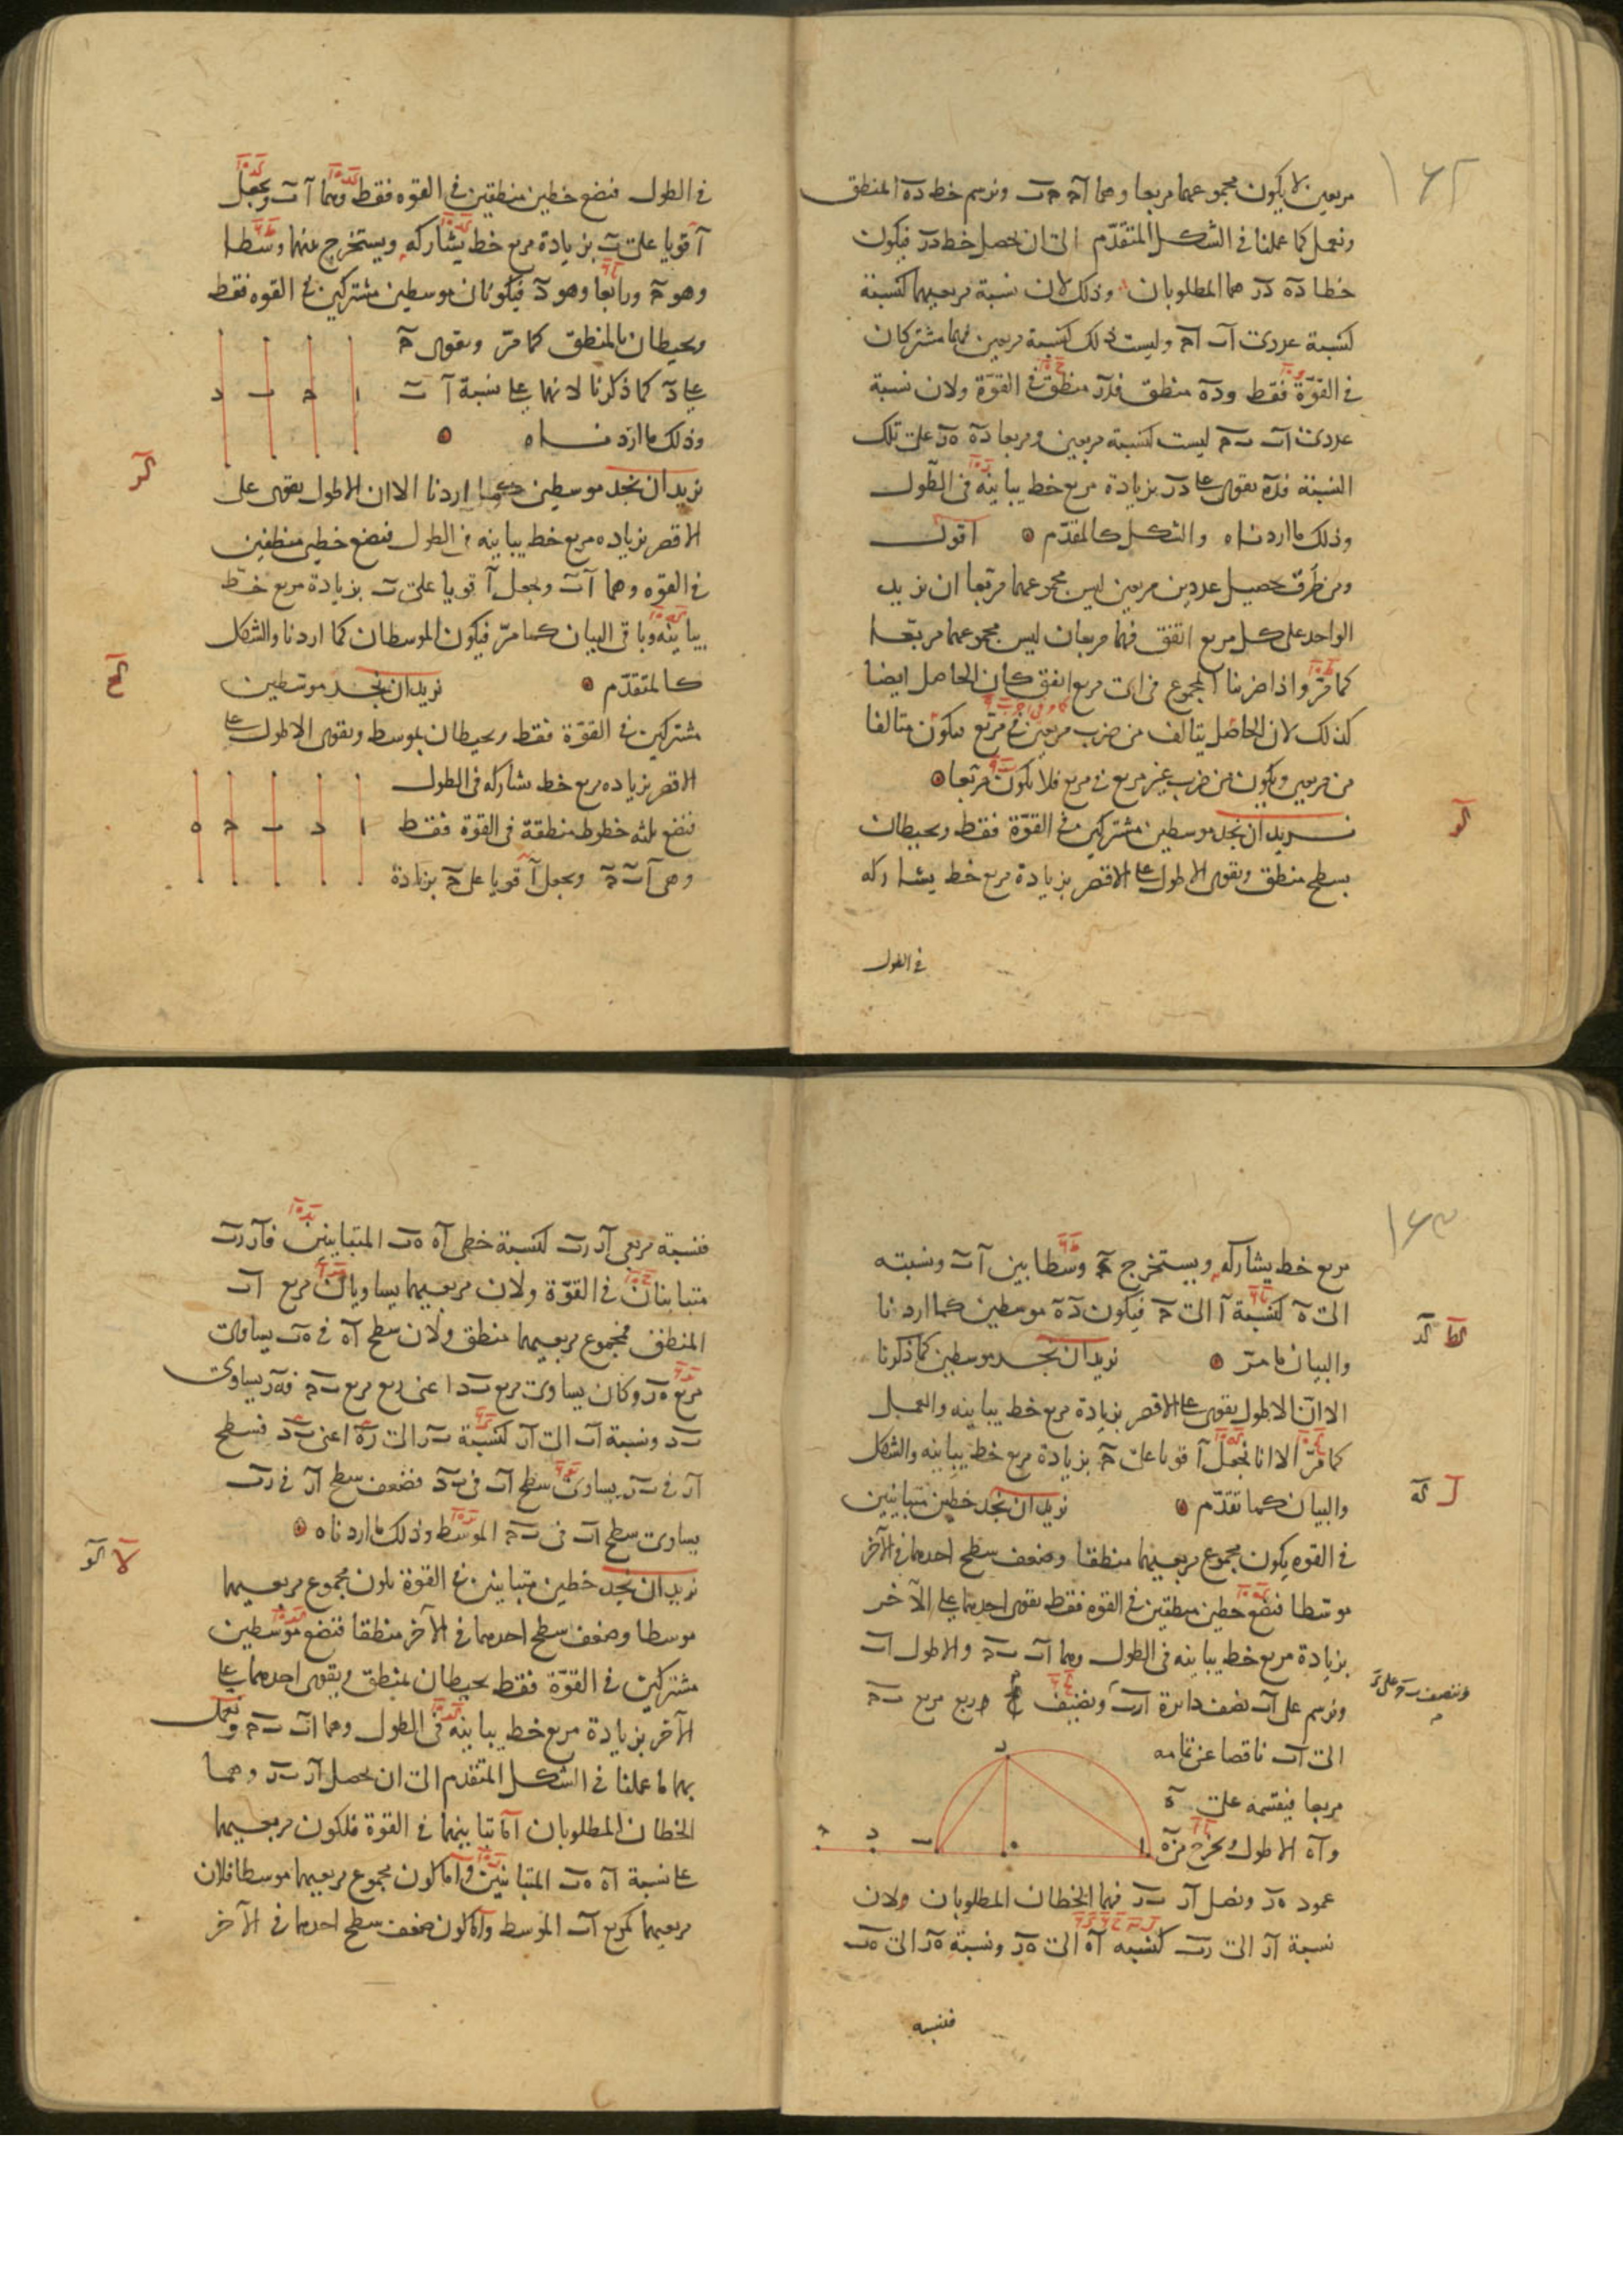 ١٦٢
مربعين لا يكون مجموعهما مربعا وهما آح حب ونرسم خط ده المنطق
ونعمل كما عملنا في الشكل المتقدم الى ان يحصل خط در فيكون
خطا ده در هما المطلوبان وذلك لان نسبة مربعيهما كنسبة
كنسبة عددى اب اح وليست ذلك كنسبة مربعين فهما مشتركان
في القوة فقط وده منطق فدر منطق في القوة ولان نسبة
عددى اب بح ليست كنسبة مربعين ومربعا ده هر على تلك
النسبة فده يقوى على در بزيادة مربع خط يباينه في الطول
وذلك ما اردناه والشكل كالمقدم اقول
ومن طرق تحصيل عددين مربعين ليس مجموعهما مربعا ان نزيد
الواحد على كل مربع اتفق فهما مربعان ليس مجموعهما مربعا
كما مر واذا ضربنا المجموع في اى مربع اتفق كان الحاصل ايضا
كذلك لان الحاصل يتالف من ضرب مربعين في مربع فيكون متالفا
من مربعين ويكون من ضرب غير مربع في مربع فلا يكون مربعا
كو
نريد ان نجد موسطين مشتركين في القوة فقط ويحيطان
بسطح منطق ويقوى الاطول على الاقصر بزيادة مربع خط يشاركه
في الطول
في الطول فنضع خطين منطقين في القوة فقط وهما آ ب ونجعل
آ قويا على ب بزيادة مربع خط يشاركه ويستخرج بينهما وسطا
وهو ح ورابعا وهو د فيكونان موسطين مشتركين في القوه فقط
ويحيطان بالمنطق كما مر ويقوى ح
على د كما ذكرنا لانهما على نسبة آ ب
وذلك ما اردناه
ا ح ب د
كز
نريد ان نجد موسطين كما اردنا الا ان الاطول يقوى على
الاقصر بزياده مربع خط يباينه في الطول فنضع خطين منطقين
في القوه وهما آ ب ونجعل آ قويا على ب بزيادة مربع خط
يباينه وباقى البيان كما مر فيكون الموسطان كما اردنا والشكل
كالمتقدم نريد ان نجد موسطين
كح
مشتركين في القوة فقط ويحيطان بموسط ويقوى الاطول على
الاقصر بزياده مربع خط يشاركه في الطول
فنضع ثلثه خطوط منطقة في القوة فقط
وهى آ ب ح ونجعل آ قويا على ح بزيادة
ا د ب ح ه
١٦٣
مربع خط يشاركه ويستخرج د وسطا بين آ ب ونسبته
الى ه كنسبة آ الى ح فيكون د ه موسطين كما اردنا
والبيان ما مر نريد ان نجد موسطين كما ذكرنا
كط كد
الا ان الاطول يقوى على الاقصر بزيادة مربع خط يباينه والعمل
كما مر الا انا نجعل آ قويا على ح بزيادة مربع خط يباينه والشكل
والبيان كما تقدم نريد ان نجد خطين متباينين
ل كه
في القوه يكون مجموع مربعيهما منطقا وضعف سطح احدهما في الآخر
موسطا فنضع خطين منطقين في القوه فقط يقوى احدهما على الآخر
بزيادة مربع خط يباينه في الطول وهما اب بح والاطول اب
وننصف بح على د
ونرسم على اب نصف دائرة ارب ونضيف ربع مربع بح
الى اب ناقصا عن تمامه
مربعا فيقسمه على ه
واه الاطول ونخرج من ه
ر
ا ه ب د ح
عمود هر ونصل ار بر فهما الخطان المطلوبان ولان
نسبة ار الى رب كنسبه اه الى هر ونسبة هر الى هب
فنسبه
فنسبة مربعى ار رب كنسبة خطى اه هب المتباينين فار رب
متباينان في القوة ولان مربعيهما يساويان مربع اب
المنطق فمجموع مربعيهما منطق ولان سطح اه في هب يساوى
مربع هر وكان يساوى مربع بد اعنى ربع مربع بح فهر يساوى
بد ونسبة اب الى ار كنسبة بر الى ره اعنى بد فسطح
ار في بر يساوى سطح اب في بد فضعف سطح ار في رب
يساوى سطح اب في بح الموسط وذلك ما اردناه
لا كو
نريد ان نجد خطين متباينين في القوة يكون مجموع مربعيهما
موسطا وضعف سطح احدهما في الآخر منطقا فنضع موسطين
مشتركين في القوة فقط يحيطان بمنطق ويقوى احدهما على
الآخر بزيادة مربع خط يباينه في الطول وهما اب بح ونعمل
بهما ما عملنا في الشكل المتقدم الى ان يحصل ار بر وهما
الخطان المطلوبان اما تباينهما في القوة فلكون مربعيهما
على نسبة اه هب المتباينين واما كون مجموع مربعيهما موسطا فلان
مربعيهما كمربع اب الموسط واما كون ضعف سطح احدهما في الآخر